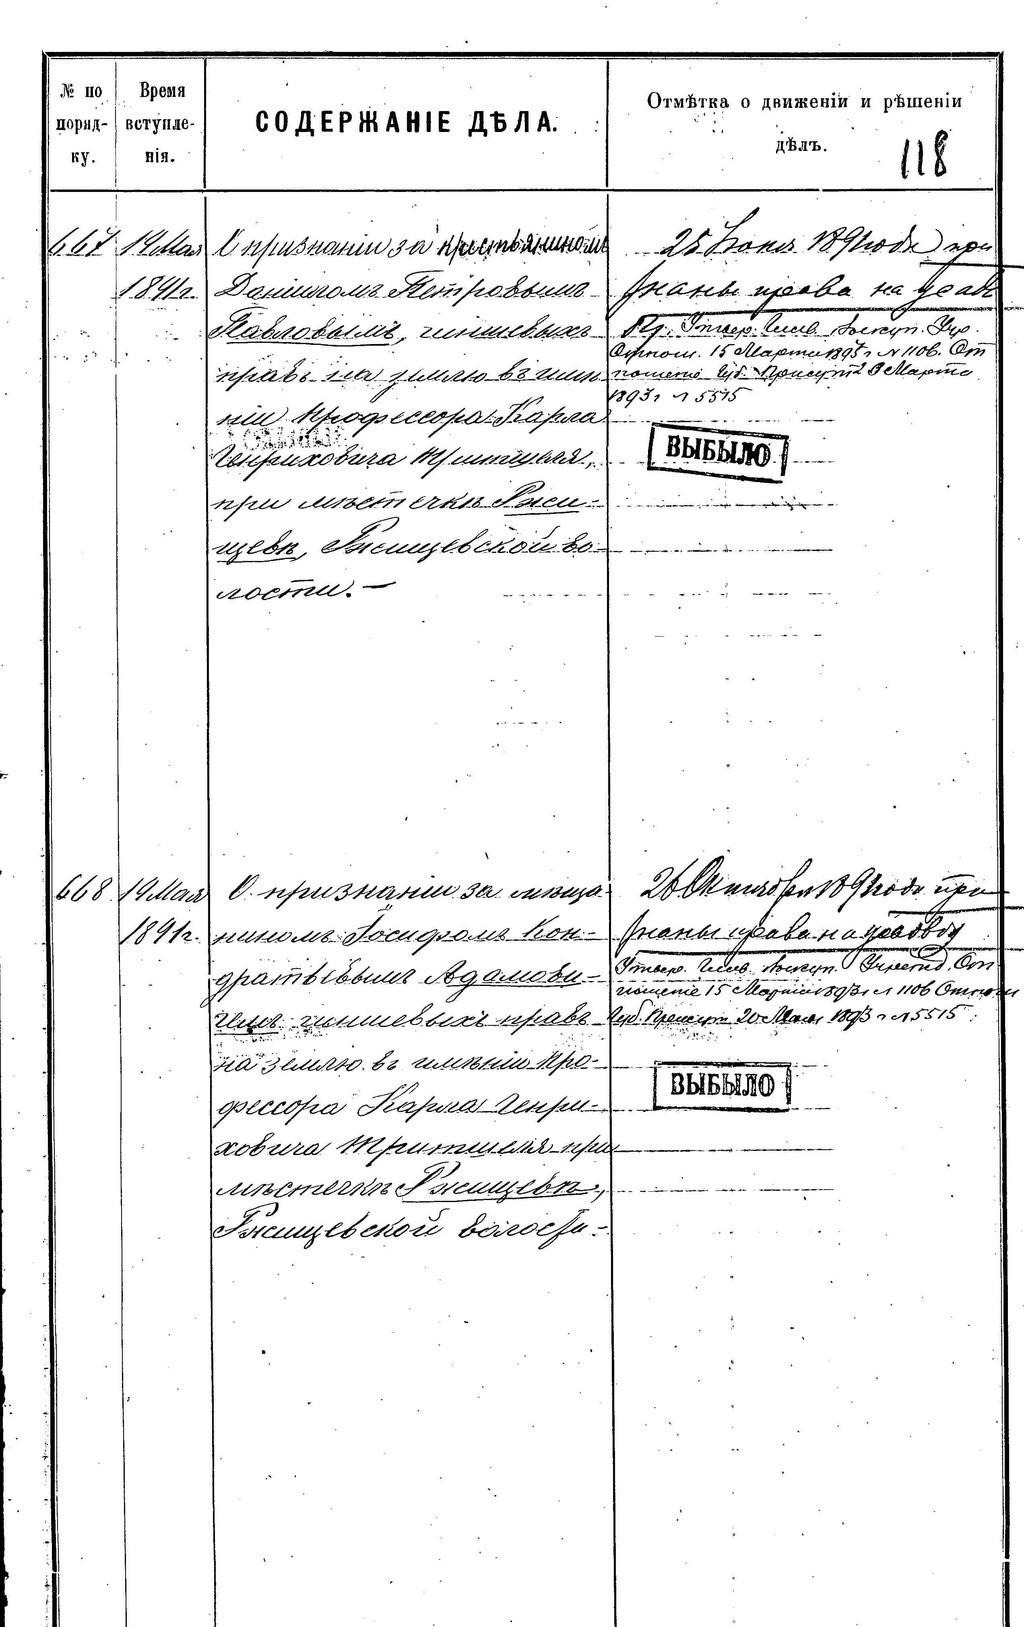 № по порядку.
Время вступленія.
СОДЕРЖАНІЕ ДѢЛА.
Отмѣтка о движеніи и рѣшеніи дѣлъ.
118
667
19 Мая
1891 г.
О признаніи за крестьяниномъ
Даніиломъ Петровымъ
Павловымъ, чиншевыхъ
правъ на землю въ имѣ
ніи Профессора Карла
Генриховича
при мѣстечкѣ Ржи-
щевѣ, Ржищевской во-
лости. —
1891 года при
знаны права на усад
15 Марта 1893 г № 1106. От
ношеніе Губ. Присут. Марта
1893 г № 5515
ВЫБЫЛО
668
19 Мая
1891 г.
О признаніи за мѣща
ниномъ Іосифомъ Кон-
дратьевымъ Адамови-
чемъ чиншевыхъ правъ
на землю въ имѣніи Про-
фессора Карла Генри-
ховича при
мѣстечкѣ Ржищевѣ,
Ржищевской волости.
26 Октября 1891 года при
знаны права на усадбу
ношеніе 15 Марта 1893 г № 1106
Губ. Присут 20 Мая 1893 г № 5515
ВЫБЫЛО